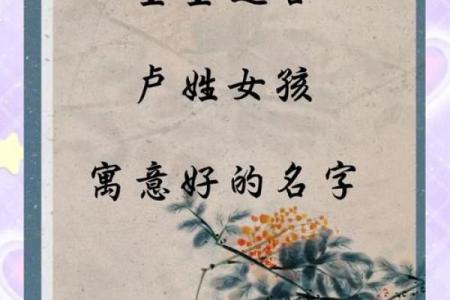 卢姓女孩
寓意好的名字